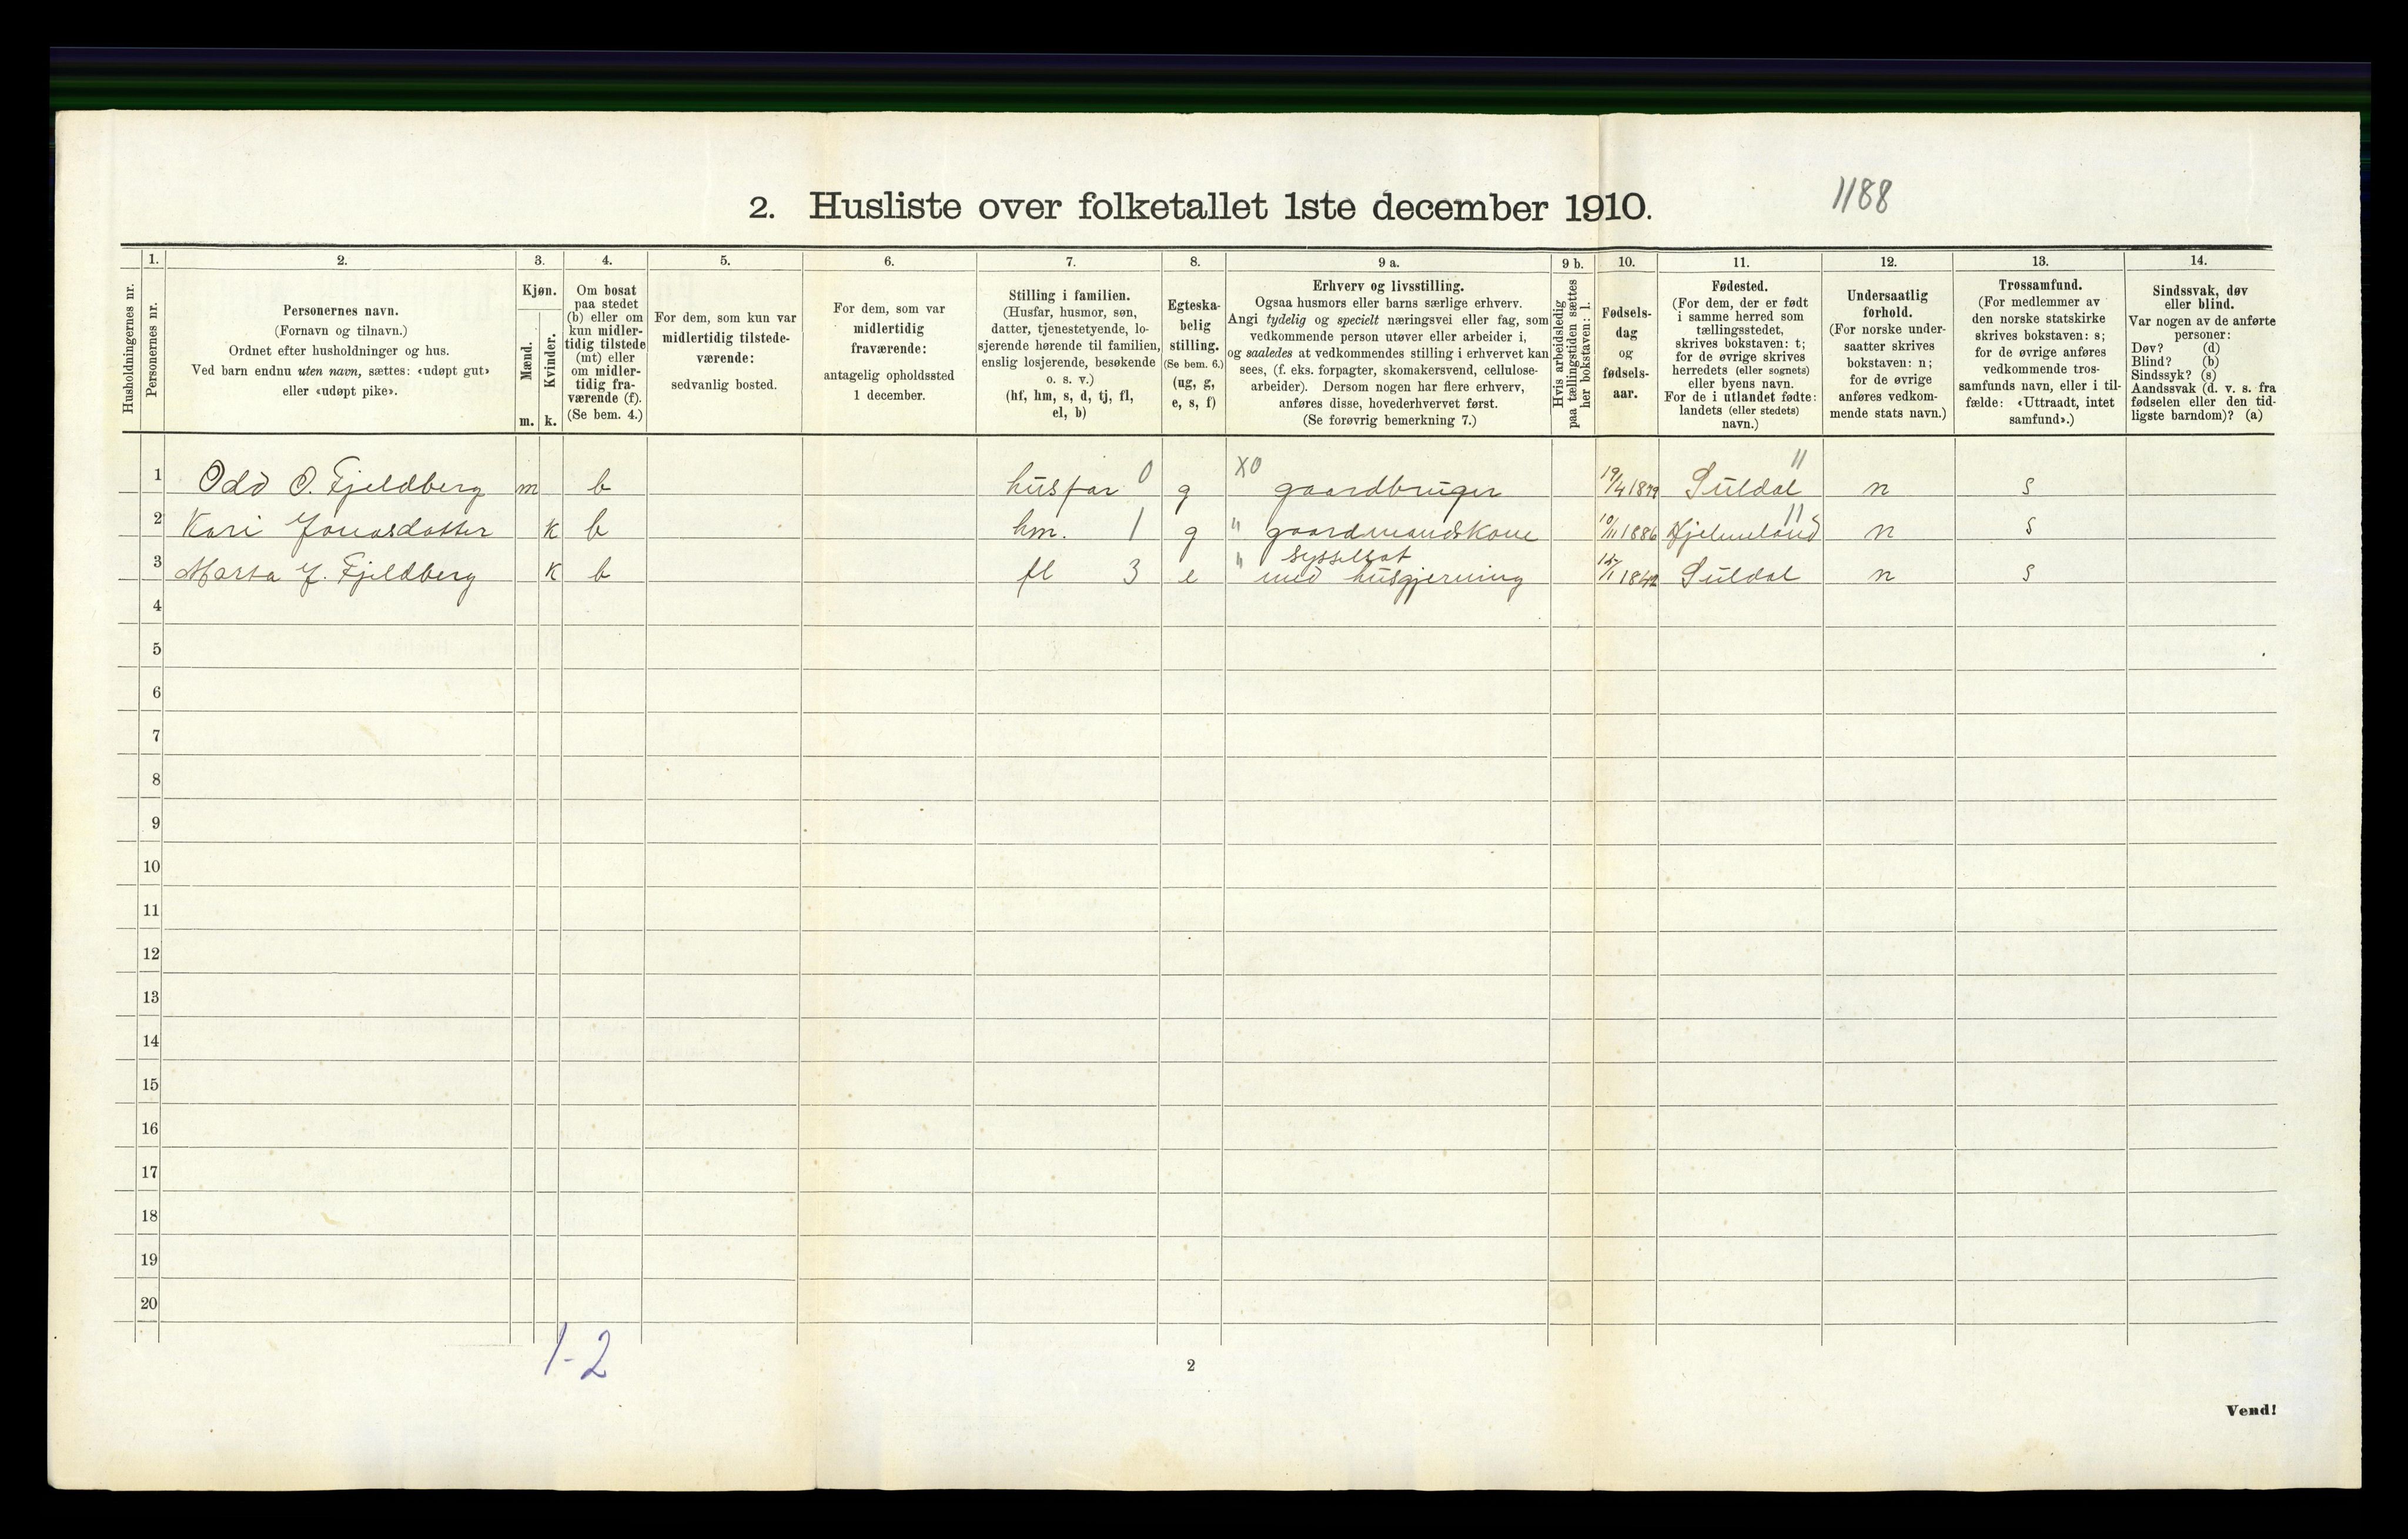 2. Husliste over folketallet 1ste december 1910.
1188
Husholdningernes nr.
1.
Personernes nr.
2.
Personernes navn.
(Fornavn og tilnavn.)
Ordnet efter husholdninger og hus.
Ved barn endnu uten navn, sættes: «udøpt gut»
eller «udøpt pike».
3.
Kjøn.
Mænd.
Kvinder.
m. k.
4.
Om bosat
paa stedet
(b) eller om
kun midler-
tidig tilstede
(mt) eller
om midler-
tidig fra-
værende (f).
(Se bem. 4.)
5.
For dem, som kun var
midlertidig tilstede-
værende:
sedvanlig bosted.
6.
For dem, som var
midlertidig
fraværende:
antagelig opholdssted
1 december.
7.
Stilling i familien.
(Husfar, husmor, søn,
datter, tjenestetyende, lo-
sjerende hørende til familien,
enslig losjerende, besøkende
o. s. v.)
(hf, hm, s, d, tj, fl,
el, b)
8.
Egteska-
belig
stilling.
(Se bem. 6.)
(ug, g,
e, s, f)
9 a.
Erhverv og livsstilling.
Ogsaa husmors eller barns særlige erhverv.
Angi tydelig og specielt næringsvei eller fag, som
vedkommende person utøver eller arbeider i,
og saaledes at vedkommendes stilling i erhvervet kan
sees, (f. eks. forpagter, skomakersvend, cellulose-
arbeider). Dersom nogen har flere erhverv,
anføres disse, hovederhvervet først.
(Se forøvrig bemerkning 7.)
9 b.
Hvis arbeidsledig
paa tællingstiden sættes
her bokstaven: l.
10.
Fødsels-
dag
og
fødsels-
aar.
11.
Fødested.
(For dem, der er født
i samme herred som
tællingsstedet,
skrives bokstaven: t;
for de øvrige skrives
herredets (eller sognets)
eller byens navn.
For de i utlandet fødte:
landets (eller stedets)
navn.)
12.
Undersaatlig
forhold.
(For norske under-
saatter skrives
bokstaven: n;
for de øvrige
anføres vedkom-
mende stats navn.)
13.
Trossamfund.
(For medlemmer av
den norske statskirke
skrives bokstaven: s;
for de øvrige anføres
vedkommende tros-
samfunds navn, eller i til-
fælde: «Uttraadt, intet
samfund».)
14.
Sindssvak, døv
eller blind.
Var nogen av de anførte
personer:
Døv? (d)
Blind? (b)
Sindssyk? (s)
Aandssvak (d. v. s. fra
fødselen eller den tid-
ligste barndom)? (a)
1 Odd O. Fjeldberg m b husfar 0 g X0 gaardbruger 19/4 1879 Suldal " n s
2 Kari Jonasdatter k b hm. 1 g " gaardmandskone 10/11 1886 Hjelmeland " n s
3 Marta J. Fjeldberg k b fl 3 e " sysselsat
med husgjerning 1842 Suldal n s
4
5
6
7
8
9
10
11
12
13
14
15
16
17
18
19
20
1-2
2
Vend!